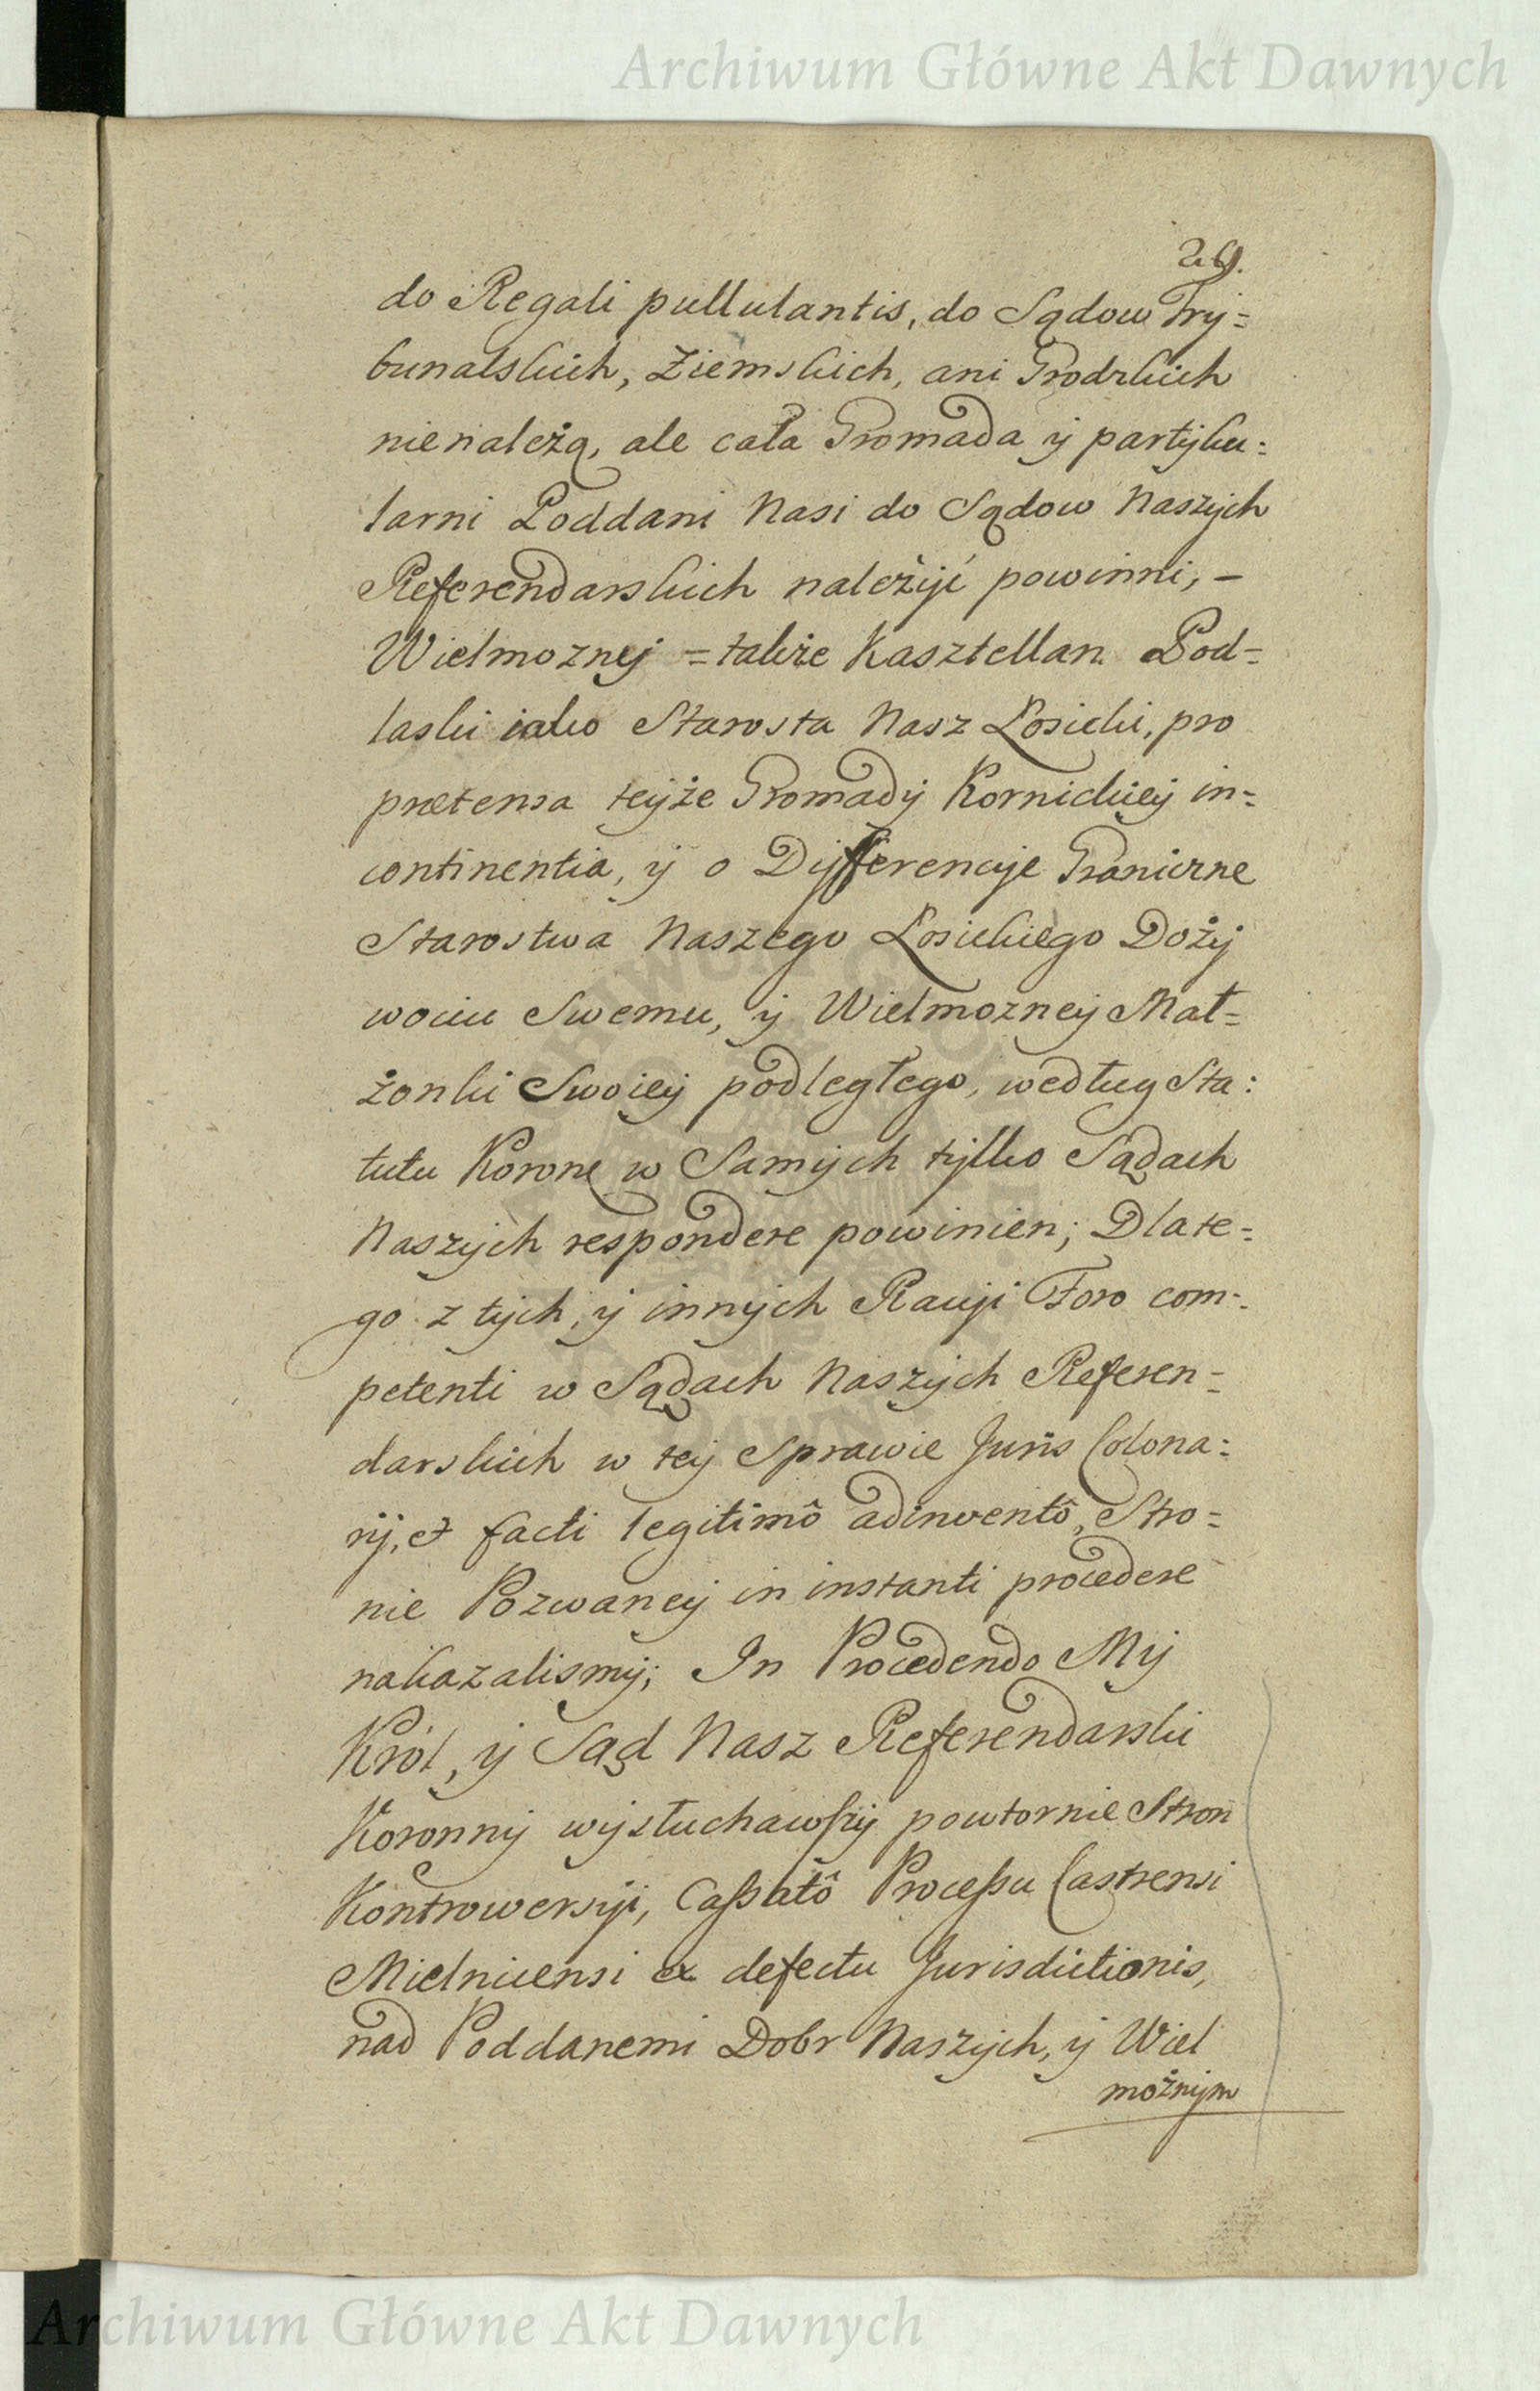 Archiwum Główne Akt Dawnych
do Regali pullulantis, do Sądow Try=
bunalskich, Ziemskich, ani Grodzkich
nienależą, ale cała Gromada ÿ partÿku:
larni Poddani Nasi do Sądow Naszÿch
Referendarskich należÿć powinni, –
Wielmoznej = także Kasztellan Pod=
laski iako Starosta Nasz Łosicki, pro
prætensa teÿże Gromadÿ Kornickieÿ in=
continentia, ÿ o Dÿfferencÿe Graniczne
Starostwa Naszego Łosickiego Dożÿ
wociu Swemu, ÿ Wielmozneÿ Mał=
żonki Swoieÿ podległego, według Sta:
tutu Koronę w Samÿch tÿlko Sądach
Naszÿch respondere powinien; Dlate=
go z tÿch, ÿ innÿch Racÿi Foro com=
petenti w Sądach Naszÿch Referen=
darskich w teÿ Sprawie Juris Colona:
rÿ, et facti legitimô adinventô, Stro=
nie Pozwaneÿ in instanti procedere
nakazalismÿ; In Procedendo Mÿ
Król, ÿ Sąd Nasz Referendarski
Koronnÿ wÿsłuchawszÿ powtornie Stron
Kontrowersÿi, Cassatô Processu Castrensi
Mielnicensi ex defectu Jurisdictionis,
nad Poddanemi Dobr Naszÿch, ÿ Wiel
możnÿm
Archiwum Główne Akt Dawnych